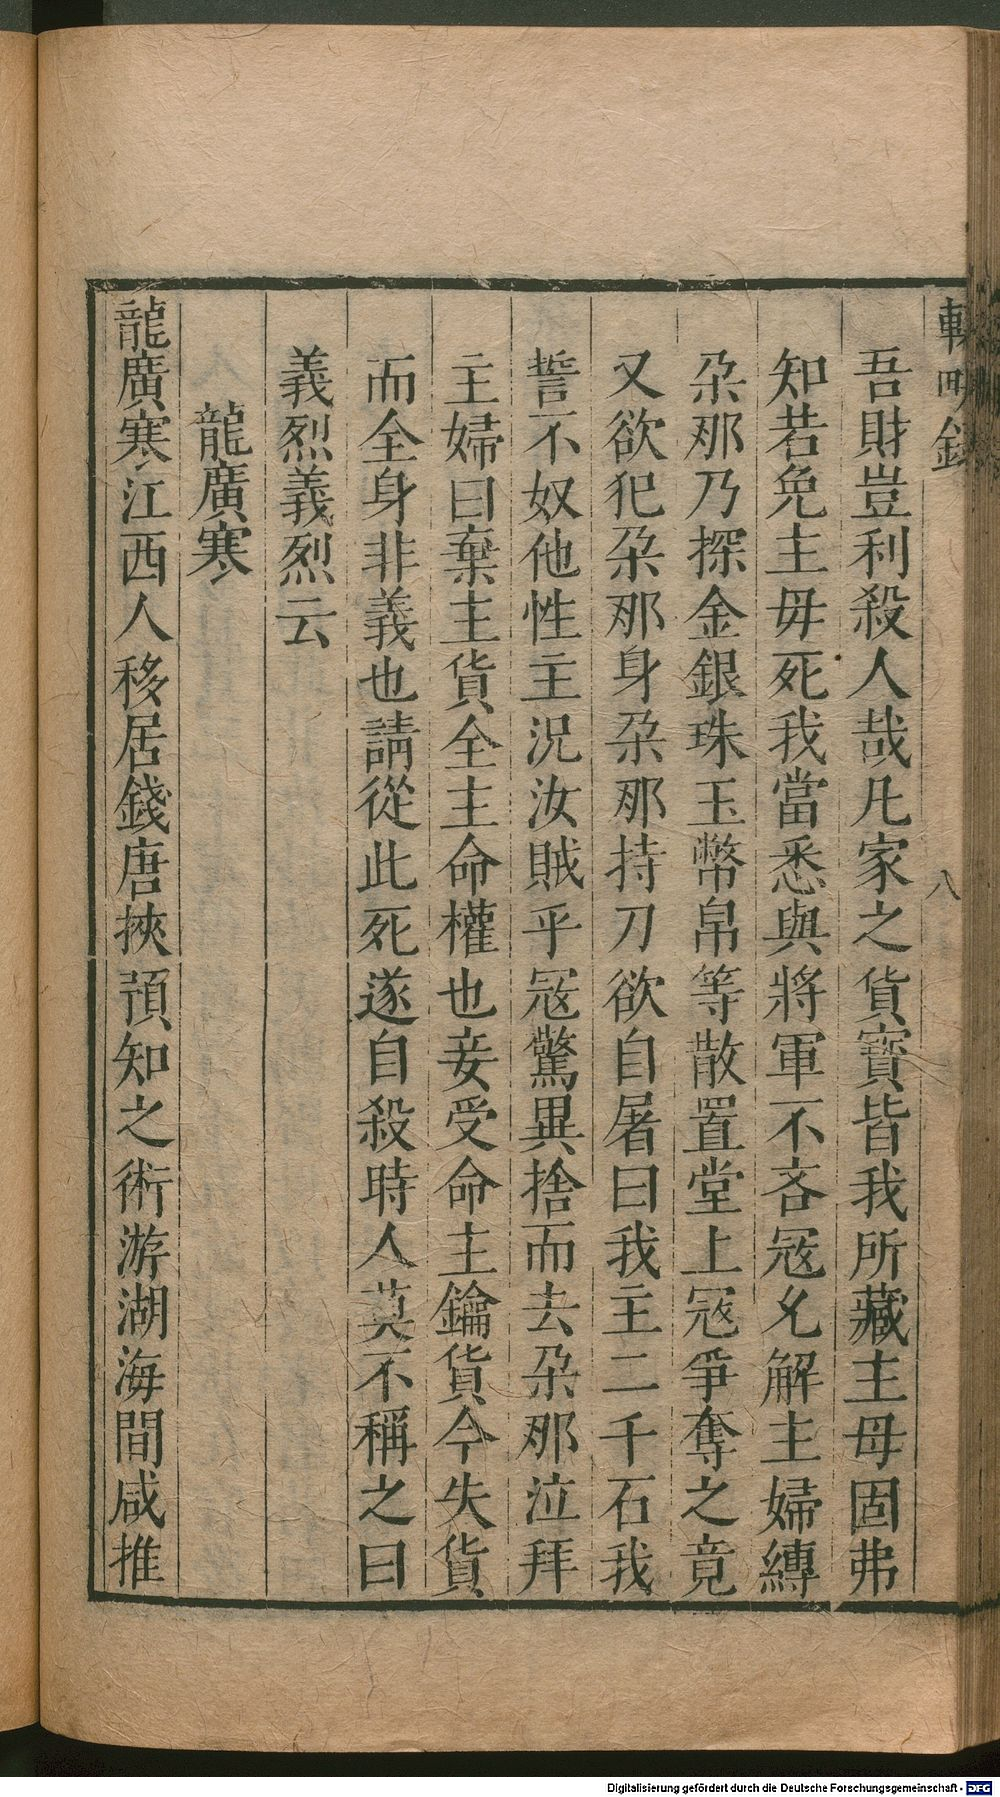 輟畊錄 八
吾財豈利殺人哉凡家之貨寶皆我所藏主母固弗
知若免主母死我當悉與將軍不吝冦允解主婦縛
朶那乃探金銀珠玉幣帛等散置堂上冦爭奪之竟
又欲犯朶那身朶那持刀欲自屠曰我主二千石我
誓不奴他性主況汝賊乎冦驚異捨而去朶那泣拜
主婦曰棄主貨全主命權也妾受命主鑰貨今失貨
而全身非義也請從此死遂自殺時人莫不稱之曰
義烈義烈云
龍廣寒
龍廣寒江西人移居錢唐挾預知之術游湖海間咸推
Digitalisierung gefördert durch die Deutsche Forschungsgemeinschaft - DFG